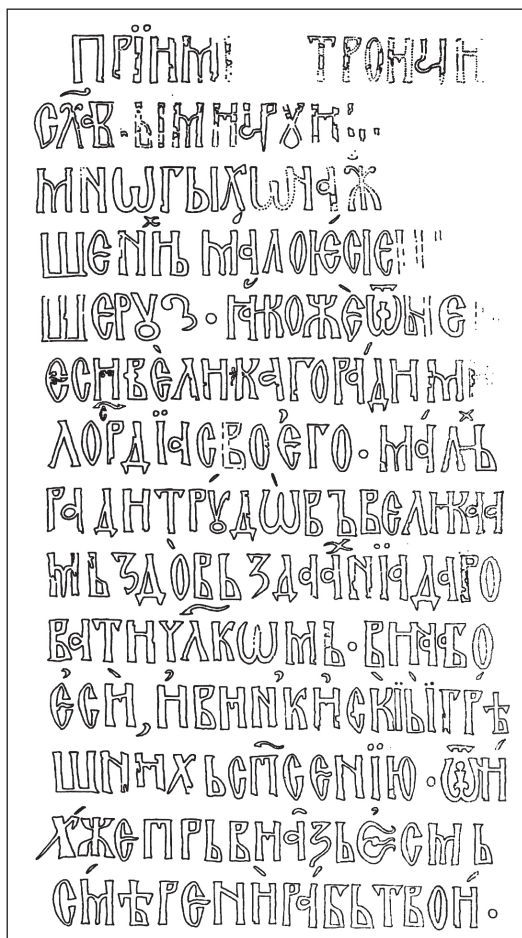 ПРЇИМИ ТРОИЧИ
СЛ҃АВ·ЫИМ
МНѠГЫХѠЧАЖ
ШЕНЇИЬ МАЛОѤСІЕ
ШЕРꙊꙀ · ꙖКОЖЕѾНЕ
ЄСИВЕЛИКАГОРАДИМИ
ЛОРДЇАСВОЕГО · МАЛⷯЬ
РАДИТРꙊДѠВЪВЕЛИКАА
МЬЗДОВЬЗДААНЇАДАРО
ВАТИЧЛ҃КѠМЬ · ВИАБО
ЄСИ, ИВИНИКИСКЇЫЇГРѢ
ШНИХЬСП҃СЕНЇЮ · ѾИ
ХЖЕПРЬВИАЗЬЄСМЬ
СМѢРЕНИРАБЬТВОИ ·